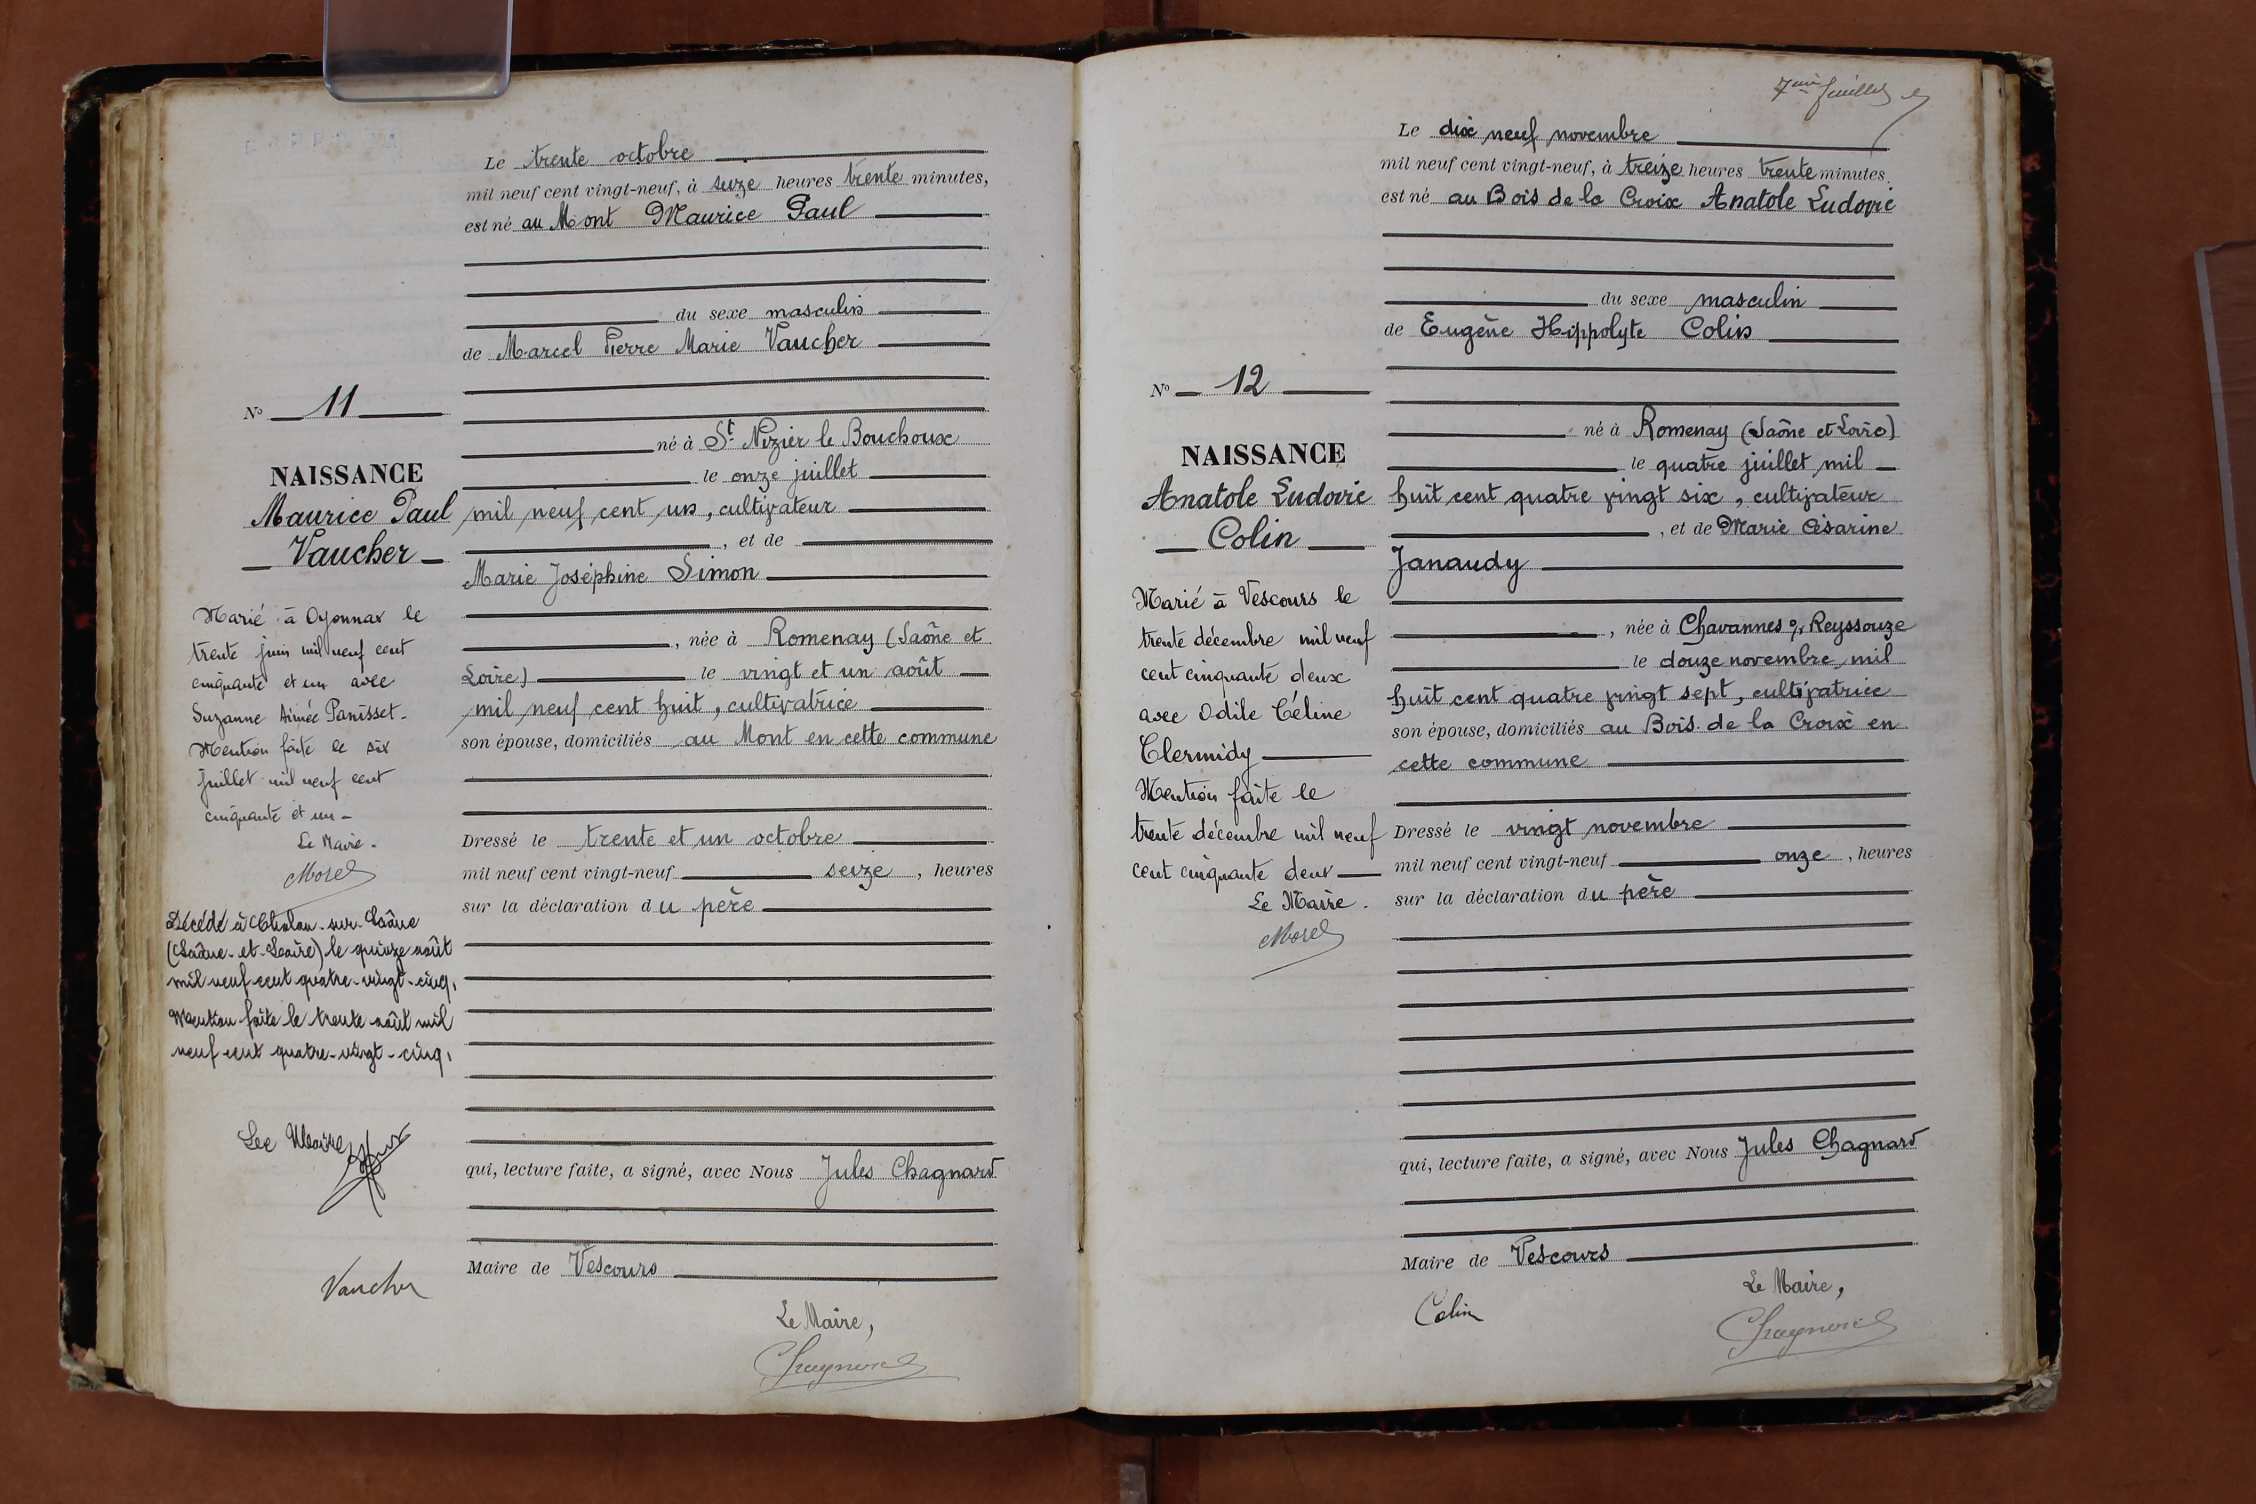 Le trente octobre
mil neuf cent vingt-neuf, à seize heures trente minutes,
est né au Mont Maurice Paul
du sexe masculin
de Marcel Pierre Marie Vaucher
né à St Nizier le Bouchoux
le onze juillet
mil neuf cent un, cultivateur
, et de
Marie Joséphine Simon
, née à Romenay (Saône et
Loire) le vingt et un août
mil neuf cent huit, cultivatrice
son épouse, domiciliés au Mont en cette commune
Dressé le trente et un octobre
mil neuf cent vingt-neuf seize, heures
sur la déclaration du père
qui, lecture faite, a signé, avec Nous Jules Chagnard
Maire de Vescours
Le Maire,
Chagnard
No 11
NAISSANCE
Maurice Paul
Vaucher
Marié à Oyonnax le
trente juin mil neuf cent
cinquante et un avec
Suzanne Aimée Panisset.
Mention faite le six
juillet mil neuf cent
cinquante et un
Le Maire.
Morel
Décédé à Chalon-sur-Saône
(Saône-et-Loire) le quinze août
mil neuf cent quatre-vingt-cinq,
Mention faite le trente août mil
neuf cent quatre-vingt-cinq,
Le Maire
Vaucher
7me feuillet
Le dix neuf novembre
mil neuf cent vingt-neuf, à treize heures trente minutes.
est né au Bois de la Croix Anatole Ludovic
du sexe masculin
de Eugène Hippolyte Colin
né à Romenay (Saône et Loire)
le quatre juillet mil
huit cent quatre vingt six, cultivateur
, et de Marie Césarine
Janaudy
, née à Chavannes s/ Reyssouze
le douze novembre mil
huit cent quatre vingt sept, cultivatrice
son épouse, domiciliés au Bois de la Croix en
cette commune
Dressé le vingt novembre
mil neuf cent vingt-neuf onze, heures
sur la déclaration du père
qui, lecture faite, a signé, avec Nous Jules Chagnard
Maire de Vescours
Le Maire,
Chagnard
No 12
NAISSANCE
Anatole Ludovic
Colin
Marié à Vescours le
trente décembre mil neuf
cent cinquante deux
avec Odile Céline
Clermidy
Mention faite le
trente décembre mil neuf
cent cinquante deux
Le Maire.
Morel
Colin